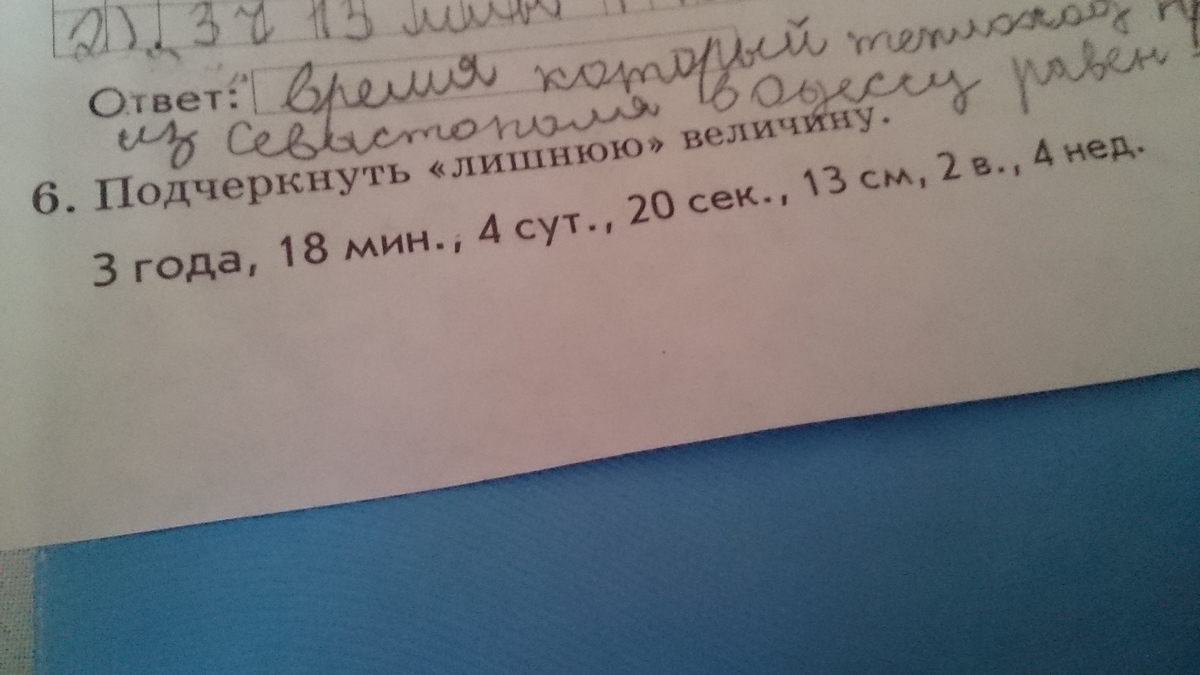 2). 3 ч 13 мин
Ответ: Время который теплоход
из Севыстополя в Одессу равен
6. Подчеркнуть «лишнюю» величину.
3 года, 18 мин., 4 сут., 20 сек., 13 см, 2 в., 4 нед.